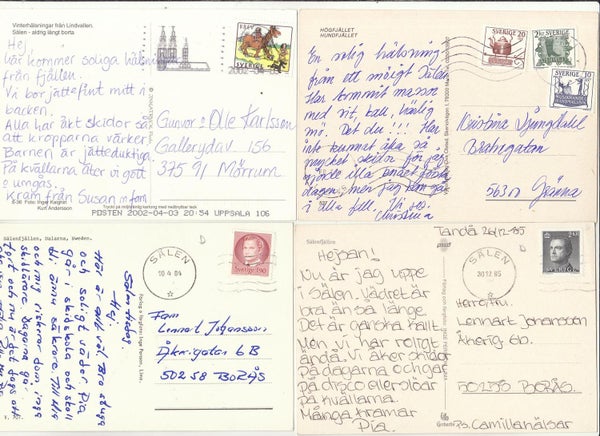 Vinterhälsningar från Lindvallen.
Sälen - aldrig långt borta
Hej
Här kommer soliga
från fjällen.
Vi bor jättefint mitt i
backen.
Alla har åkt skidor så
att kropparna värker
Barnen är jätteduktiga.
På kvällarna äter vi gott
o umgås.
Kram från Susan m fam
SVERIGE
BREV
2002-04-0
Gunvor o Olle Karlsson
Gallerydav 156
375 91 Mörrum
Kurt Andersson
POSTEN 2002-04-03 20:54 UPPSALA 106
HÖGFJÄLLET
HUNDFJÄLLET
En solig hälsning
från ett mäigt Sälen
Har kommit massa
med vit, kall, härlig
snö. Det du!!! Har
inte kunnat åka så
mycket skidor för jag
gjorde illa knäet första
dagen, men jag kan gå
i alla fall. Vi ses
Christina
SVERIGE 20
2 kr SVERIGE
SVERIGE 10
Kristina Ljungkvist
Brahegatan
563 00 Gränna
Sälenfjällen, Dalarna, Sweden.
Sälen tisdag.
Hej.
Här är vi i vår bra stuga
och soligt väder. Pia
går i skidskola och skall
bli ännu säkrare. Till 4/4
och nu riskerar dom inga
skidlärare. Dagarna går
fort och nu är det dags att
SÄLEN
10 4 84
Sverige 1.90
Fam
Lennart Johansson
Åkerigatan 6B
502 58 BORÅS
Sälenfjällen
Tandå 26/12-85
Hejsan!
Nu är jag uppe
i Sälen. Vädret är
bra än så länge.
Det är ganska kallt
Men vi har roligt
ändå. Vi åker skidor
på dagarna och går
på disco eller slöar
på kvällarna.
Många kramar
Pia.
SÄLEN
30 12 85
SVERIGE
Herr o fru.
Lennart Johansson
Åkerig 6b.
502 58 BORÅS.
Ps. Camilla hälsar